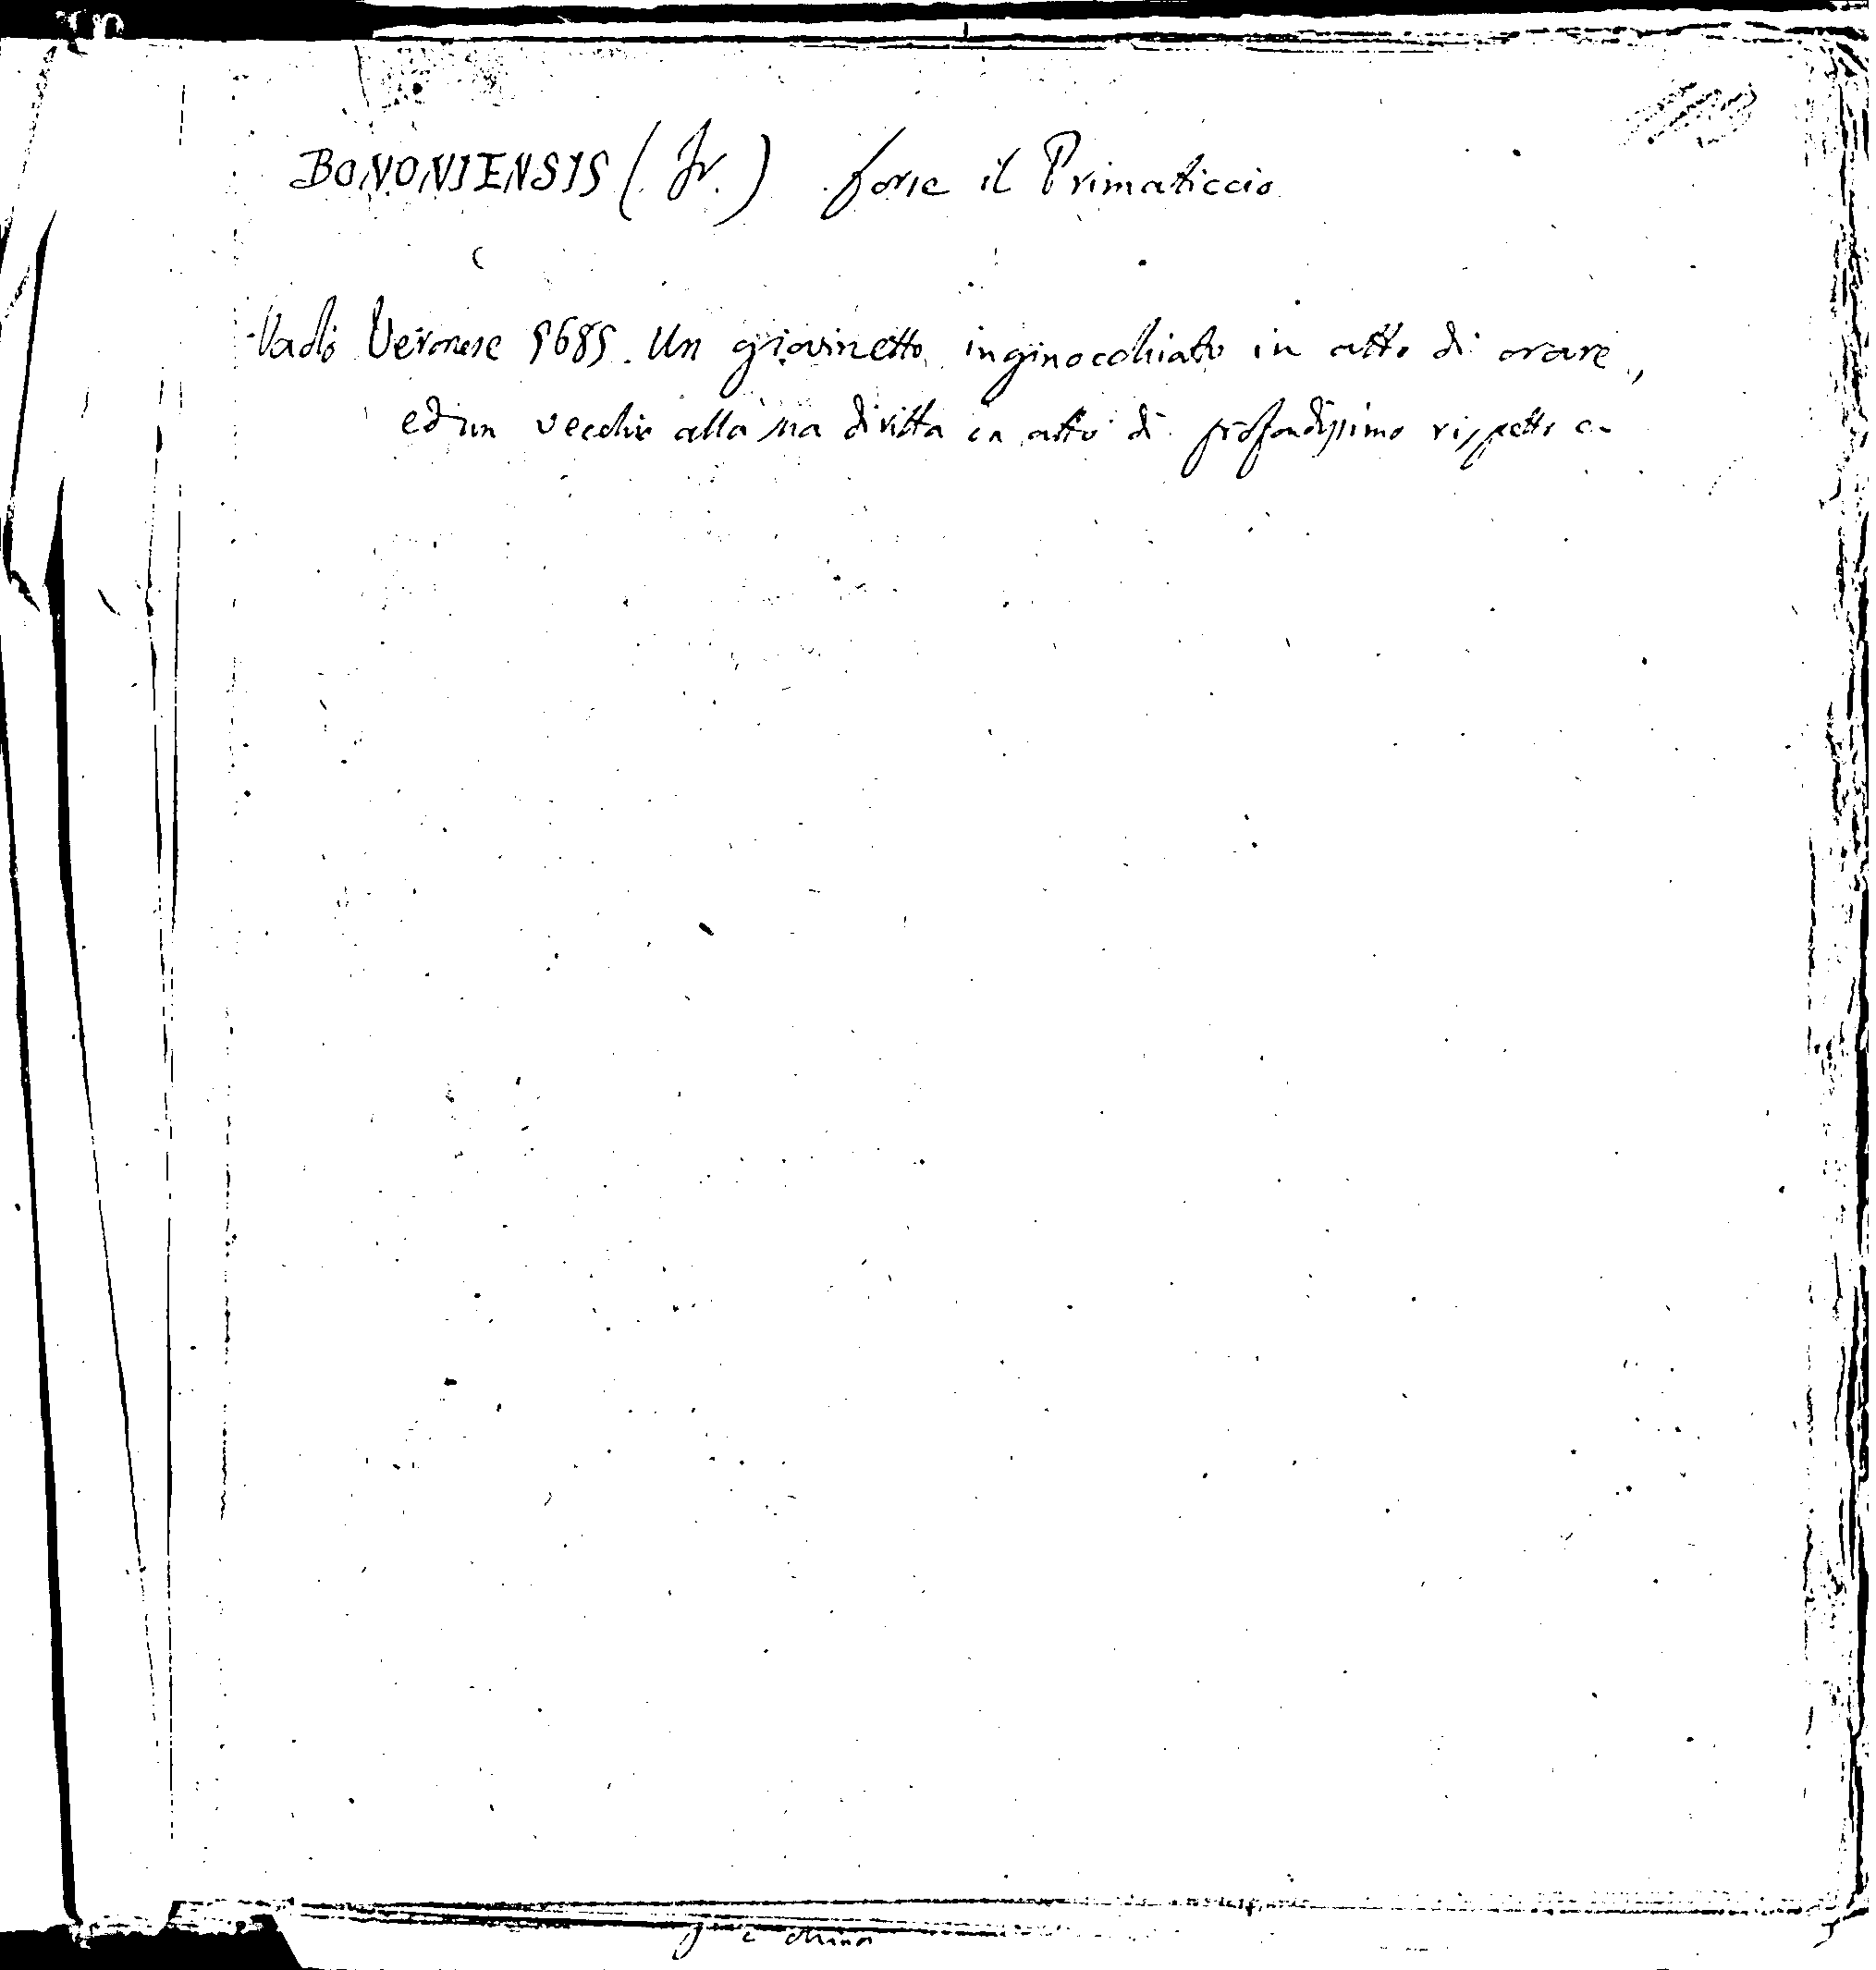 BONONIENSIS (Fr.) forse il Primaticcio
Paolo Veronese 5685. Un giovinetto inginocchiato in atto di orare,
ed un vecchio alla sua diritta in atto di profondissimo rispetto